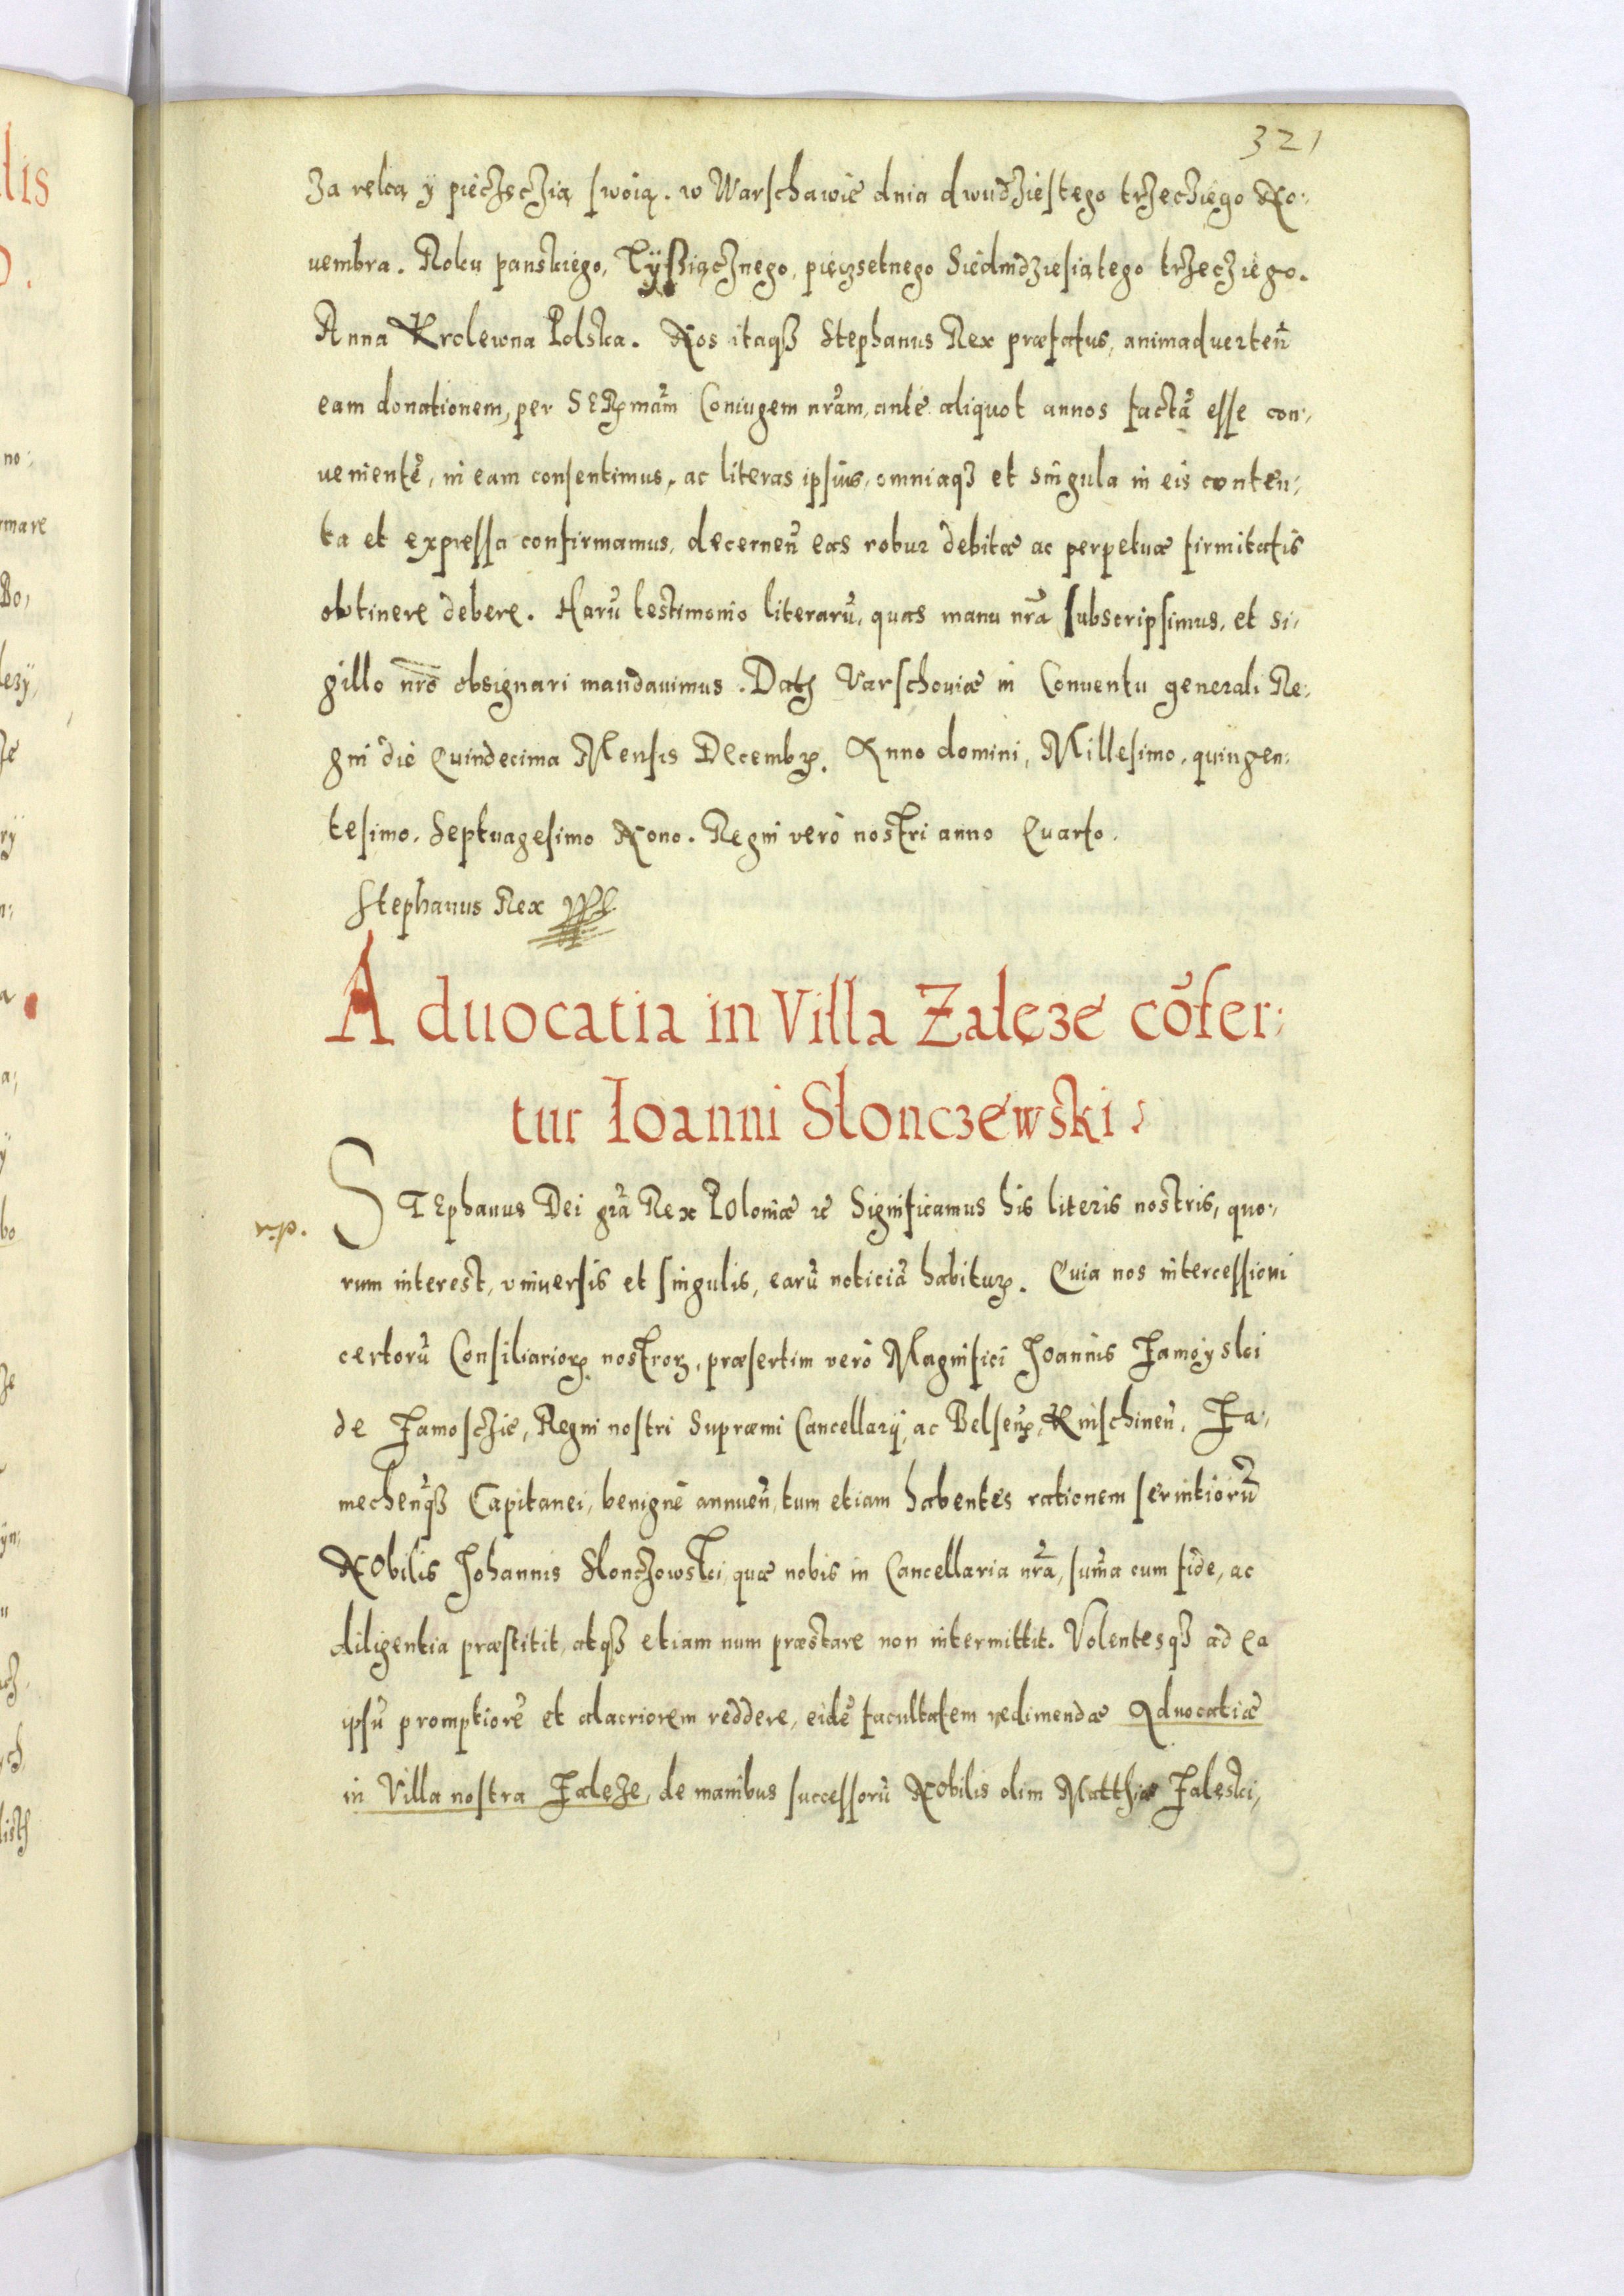 321
za ręką y pieczęczią swoią. w Warschawie dnia dwudziestego trzecziego No:
uembra. Roku panskiego, Tyßiącznego, pięczsetnego Siedmdziesiątego trzecziego.
Anna Krolewna Polska. Nos itaqȝ Stephanus Rex præfatus, animaduerteñ
eam donationem, per SERmãm Coniugem nrãm, ante aliquot annos factã esse con:
uenientẽ, in eam consentimus, ac literas ipsius, omniaqȝ et singula in eis conten:
ta et expressa confirmamus, decerneñ eas robur debitæ ac perpetuæ firmitatis
obtinere debere. Harũ testimonio literarũ, quas manu nrã subscripsimus, et si:
gillo nrõ obsignari mandauimus. Datȝ Varschouiæ in Conuentu generali Re:
gni die Quindecima Mensis Decembꝝ. Anno domini, Millesimo, quingen:
tesimo, Septuagesimo Nono. Regni verò nostri anno Quarto.
Stephanus Rex
Aduocatia in Villa Załęze cõfer:
tur Ioanni Słonczewski
STEphanus Dei grã Rex POloniæ ꝛc Significamus his literis nostris, quo:
rum interest, vniuersis et singulis, earũ noticiã habituꝝ. Quia nos intercessioni
certorũ Consiliarioꝝ nostroꝝ, præsertim verò Magnifici Joannis Zamoyski
de Zamosczie, Regni nostri Supræmi Cancellarij, ac Belseñ, Knischineñ, Za:
mecheñqȝ Capitanei, benignè annueñ, tum etiam habentes rationem seruitiorũ
NObilis Johannis Slonczowski, quæ nobis in Cancellaria nrã, sum̃a cum fide, ac
diligentia præstitit, atqȝ etiam num præstare non intermittit. Volentesqȝ ad ea
ipsũ promptiorẽ et alacriorem reddere, eidẽ facultatem redimendæ Aduocatiæ
in Villa nostra Zaleze, de manibus successorũ NObilis olim Matthiæ Zaleski,